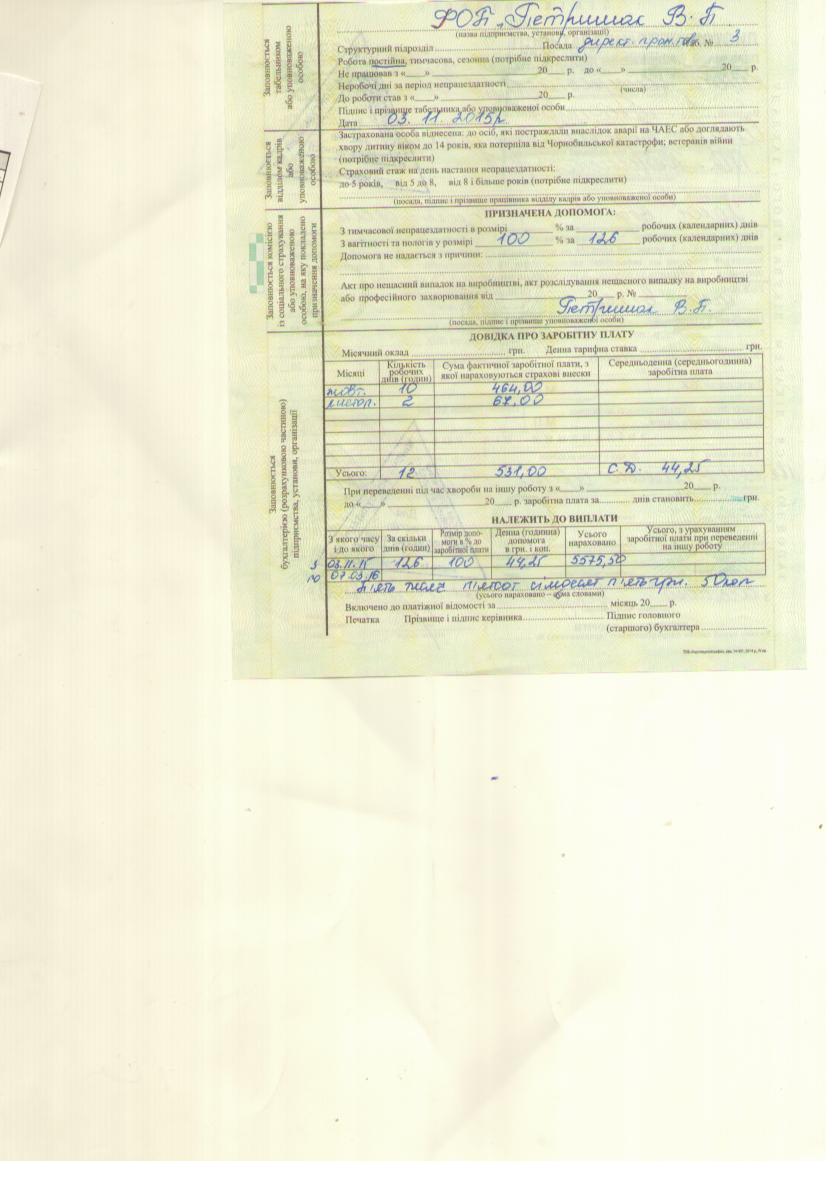 ФОП „Петришак В. П
(назва підприємства, установи, організації)
Структурний підрозділ Посада директ. пром. тов. Таб. № 3
Робота постійна, тимчасова, сезонна (потрібне підкреслити)
Не працював з «___» 20___ р. до «___» 20___ р.
Неробочі дні за період непрацездатності
(числа)
До роботи став з «___» 20___ р.
Підпис і прізвище табельника або уповноваженої особи
Дата 03. 11. 2015р.
Заповнюється табельником або уповноваженою особою
Застрахована особа віднесена: до осіб, які постраждали внаслідок аварії на ЧАЕС або доглядають
хвору дитину віком до 14 років, яка потерпіла від Чорнобильської катастрофи; ветеранів війни
(потрібне підкреслити)
Страховий стаж на день настання непрацездатності:
до 5 років, від 5 до 8, від 8 і більше років (потрібне підкреслити)
(посада, підпис і прізвище працівника відділу кадрів або уповноваженої особи)
Заповнюється відділом кадрів або уповноваженою особою
ПРИЗНАЧЕНА ДОПОМОГА:
З тимчасової непрацездатності в розмірі % за робочих (календарних) днів
З вагітності та пологів у розмірі 100 % за 126 робочих (календарних) днів
Допомога не надається з причини:
Акт про нещасний випадок на виробництві, акт розслідування нещасного випадку на виробництві
або професійного захворювання від 20 р. №
Петришак В. П.
(посада, підпис і прізвище уповноваженої особи)
Заповнюється комісією із соціального страхування або уповноваженою особою, на яку покладено призначення допомоги
ДОВІДКА ПРО ЗАРОБІТНУ ПЛАТУ
Місячний оклад грн. Денна тарифна ставка грн.
Місяці Кількість робочих днів (годин) Сума фактичної заробітної плати, з якої нараховуються страхові внески Середньоденна (середньогодинна) заробітна плата
жовт. 10 464,00
листоп. 2 67,00
Усього: 12 531,00 С. Д. 44,25
При переведенні під час хвороби на іншу роботу з «___» 20___ р.
до «___» 20___ р. заробітна плата за днів становить грн.
НАЛЕЖИТЬ ДО ВИПЛАТИ
З якого часу і до якого За скільки днів (годин) Розмір допомоги в % до заробітної плати Денна (годинна) допомога в грн. і коп. Усього нараховано Усього, з урахуванням заробітної плати при переведенні на іншу роботу
з 03.11.15 126 100 44,25 5575,50
по 07.03.16
П'ять тисяч п'ятсот сімдесят п'ять грн. 50коп
(усього нараховано – сума словами)
Включено до платіжної відомості за місяць 20___ р.
Печатка Прізвище і підпис керівника Підпис головного
(старшого) бухгалтера
Заповнюється бухгалтерією (розрахунковою частиною) підприємства, установи, організації